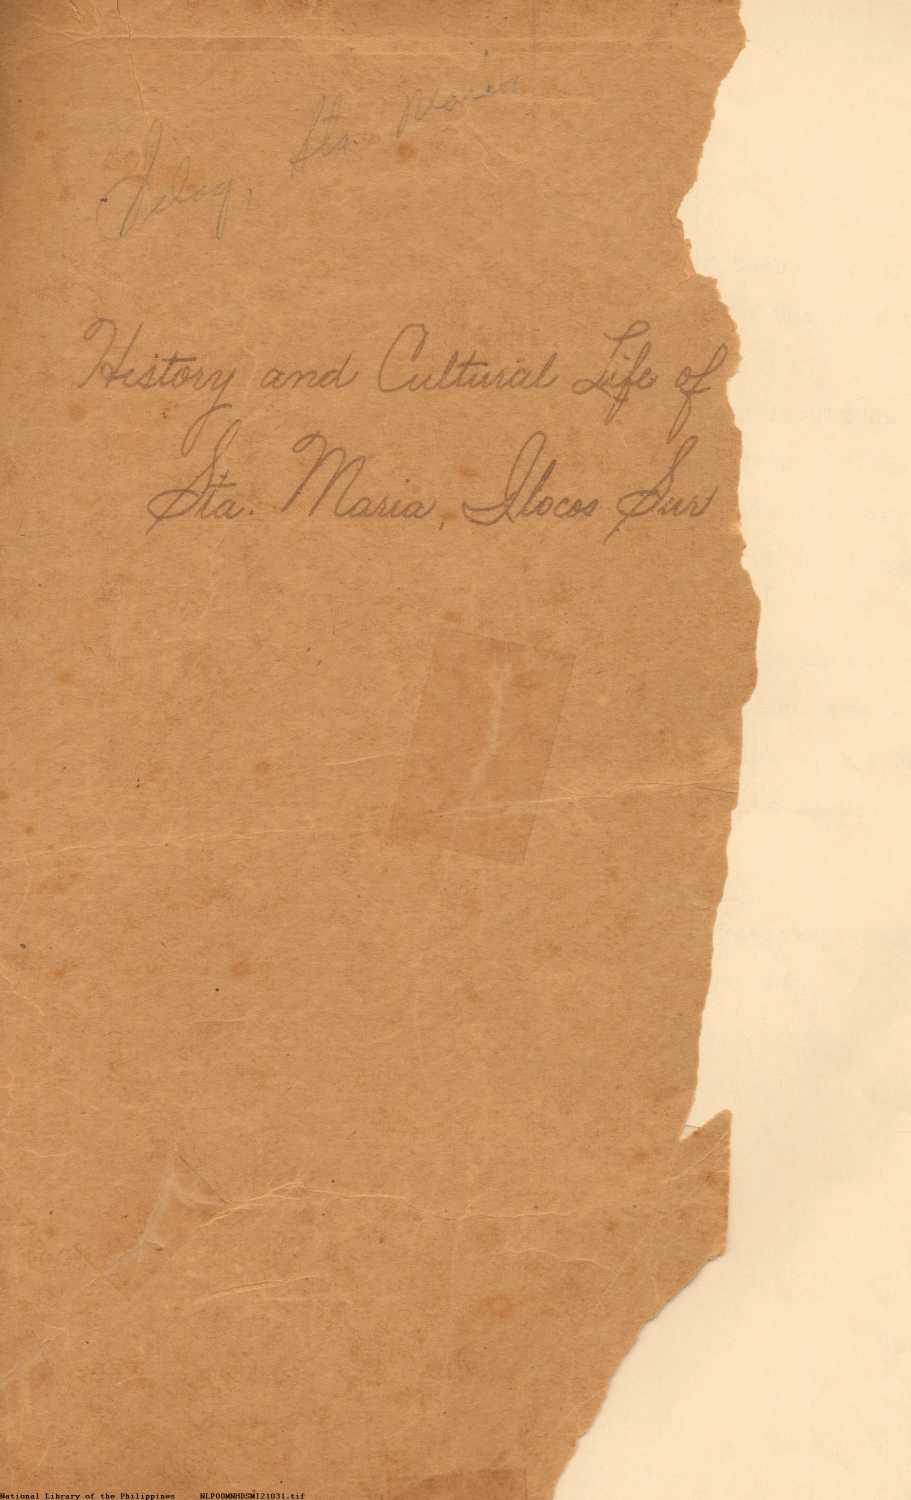 Sta. Maria
History and Cultural Life of
Sta. Maria, Ilocos Sur
National Library of the Philippines NLPOOMNHDSMI21031.tif